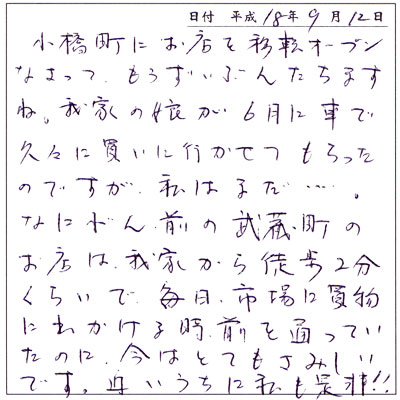 日付 平成18年9月12日
小橋町にお店を移転オープン
なさって、もうずいぶんたちます
ね。我家の娘が6月に車で
久々に買いに行かせてもらった
のですが、私はまだ…。
なにぶん、前の武蔵町の
お店は、我家から徒歩2分
くらいで、毎日、市場に買物
に出かける時、前を通ってい
たのに、今はとてもさみしい
です。近いうちに私も是非!!